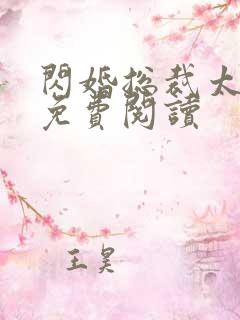 閃婚總裁太
免費閱讀
王昊